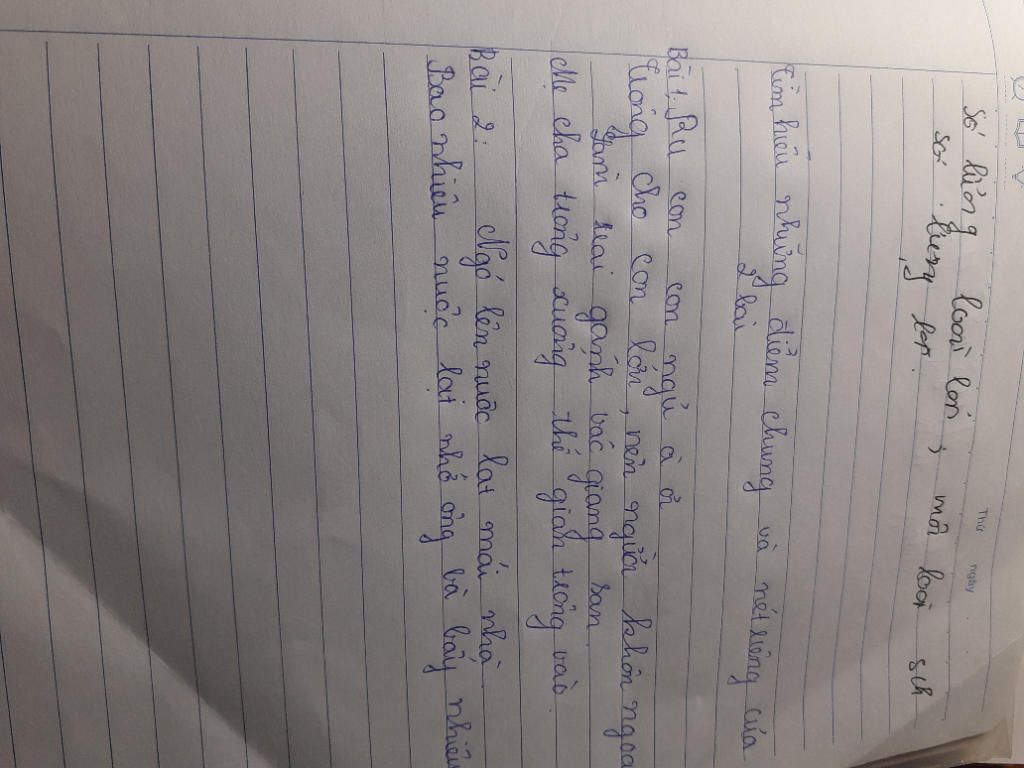 Thứ ngày
Số lượng loài lớn ; mỗi loài
Tìm hiểu những điểm chung và nét riêng của
2 bài
Bài 1. Ru con con ngủ à ơ
Trông cho con lớn, nên người khôn ngoan
Làm trai gánh vác giang san
Mẹ cha trông xuống thế gian trông vào
Bài 2: Ngó lên nuộc lạt mái nhà
Bao nhiêu nuộc lạt nhớ ông bà bấy nhiêu